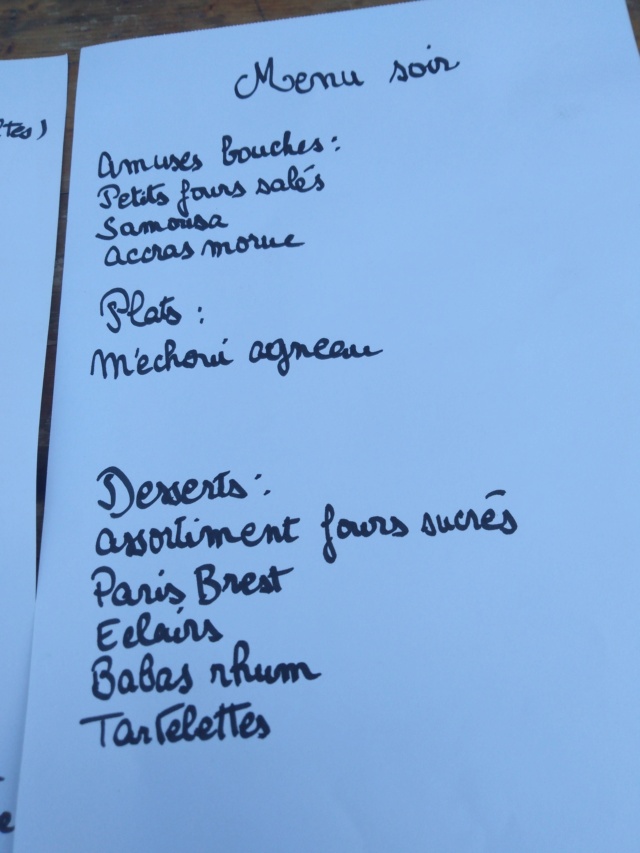 Menu soir
Amuses bouches :
Petits fours salés
Samousa
accras morue
Plats :
Méchoui agneau
Desserts :
assortiment fours sucrés
Paris Brest
Eclairs
Babas rhum
Tartelettes